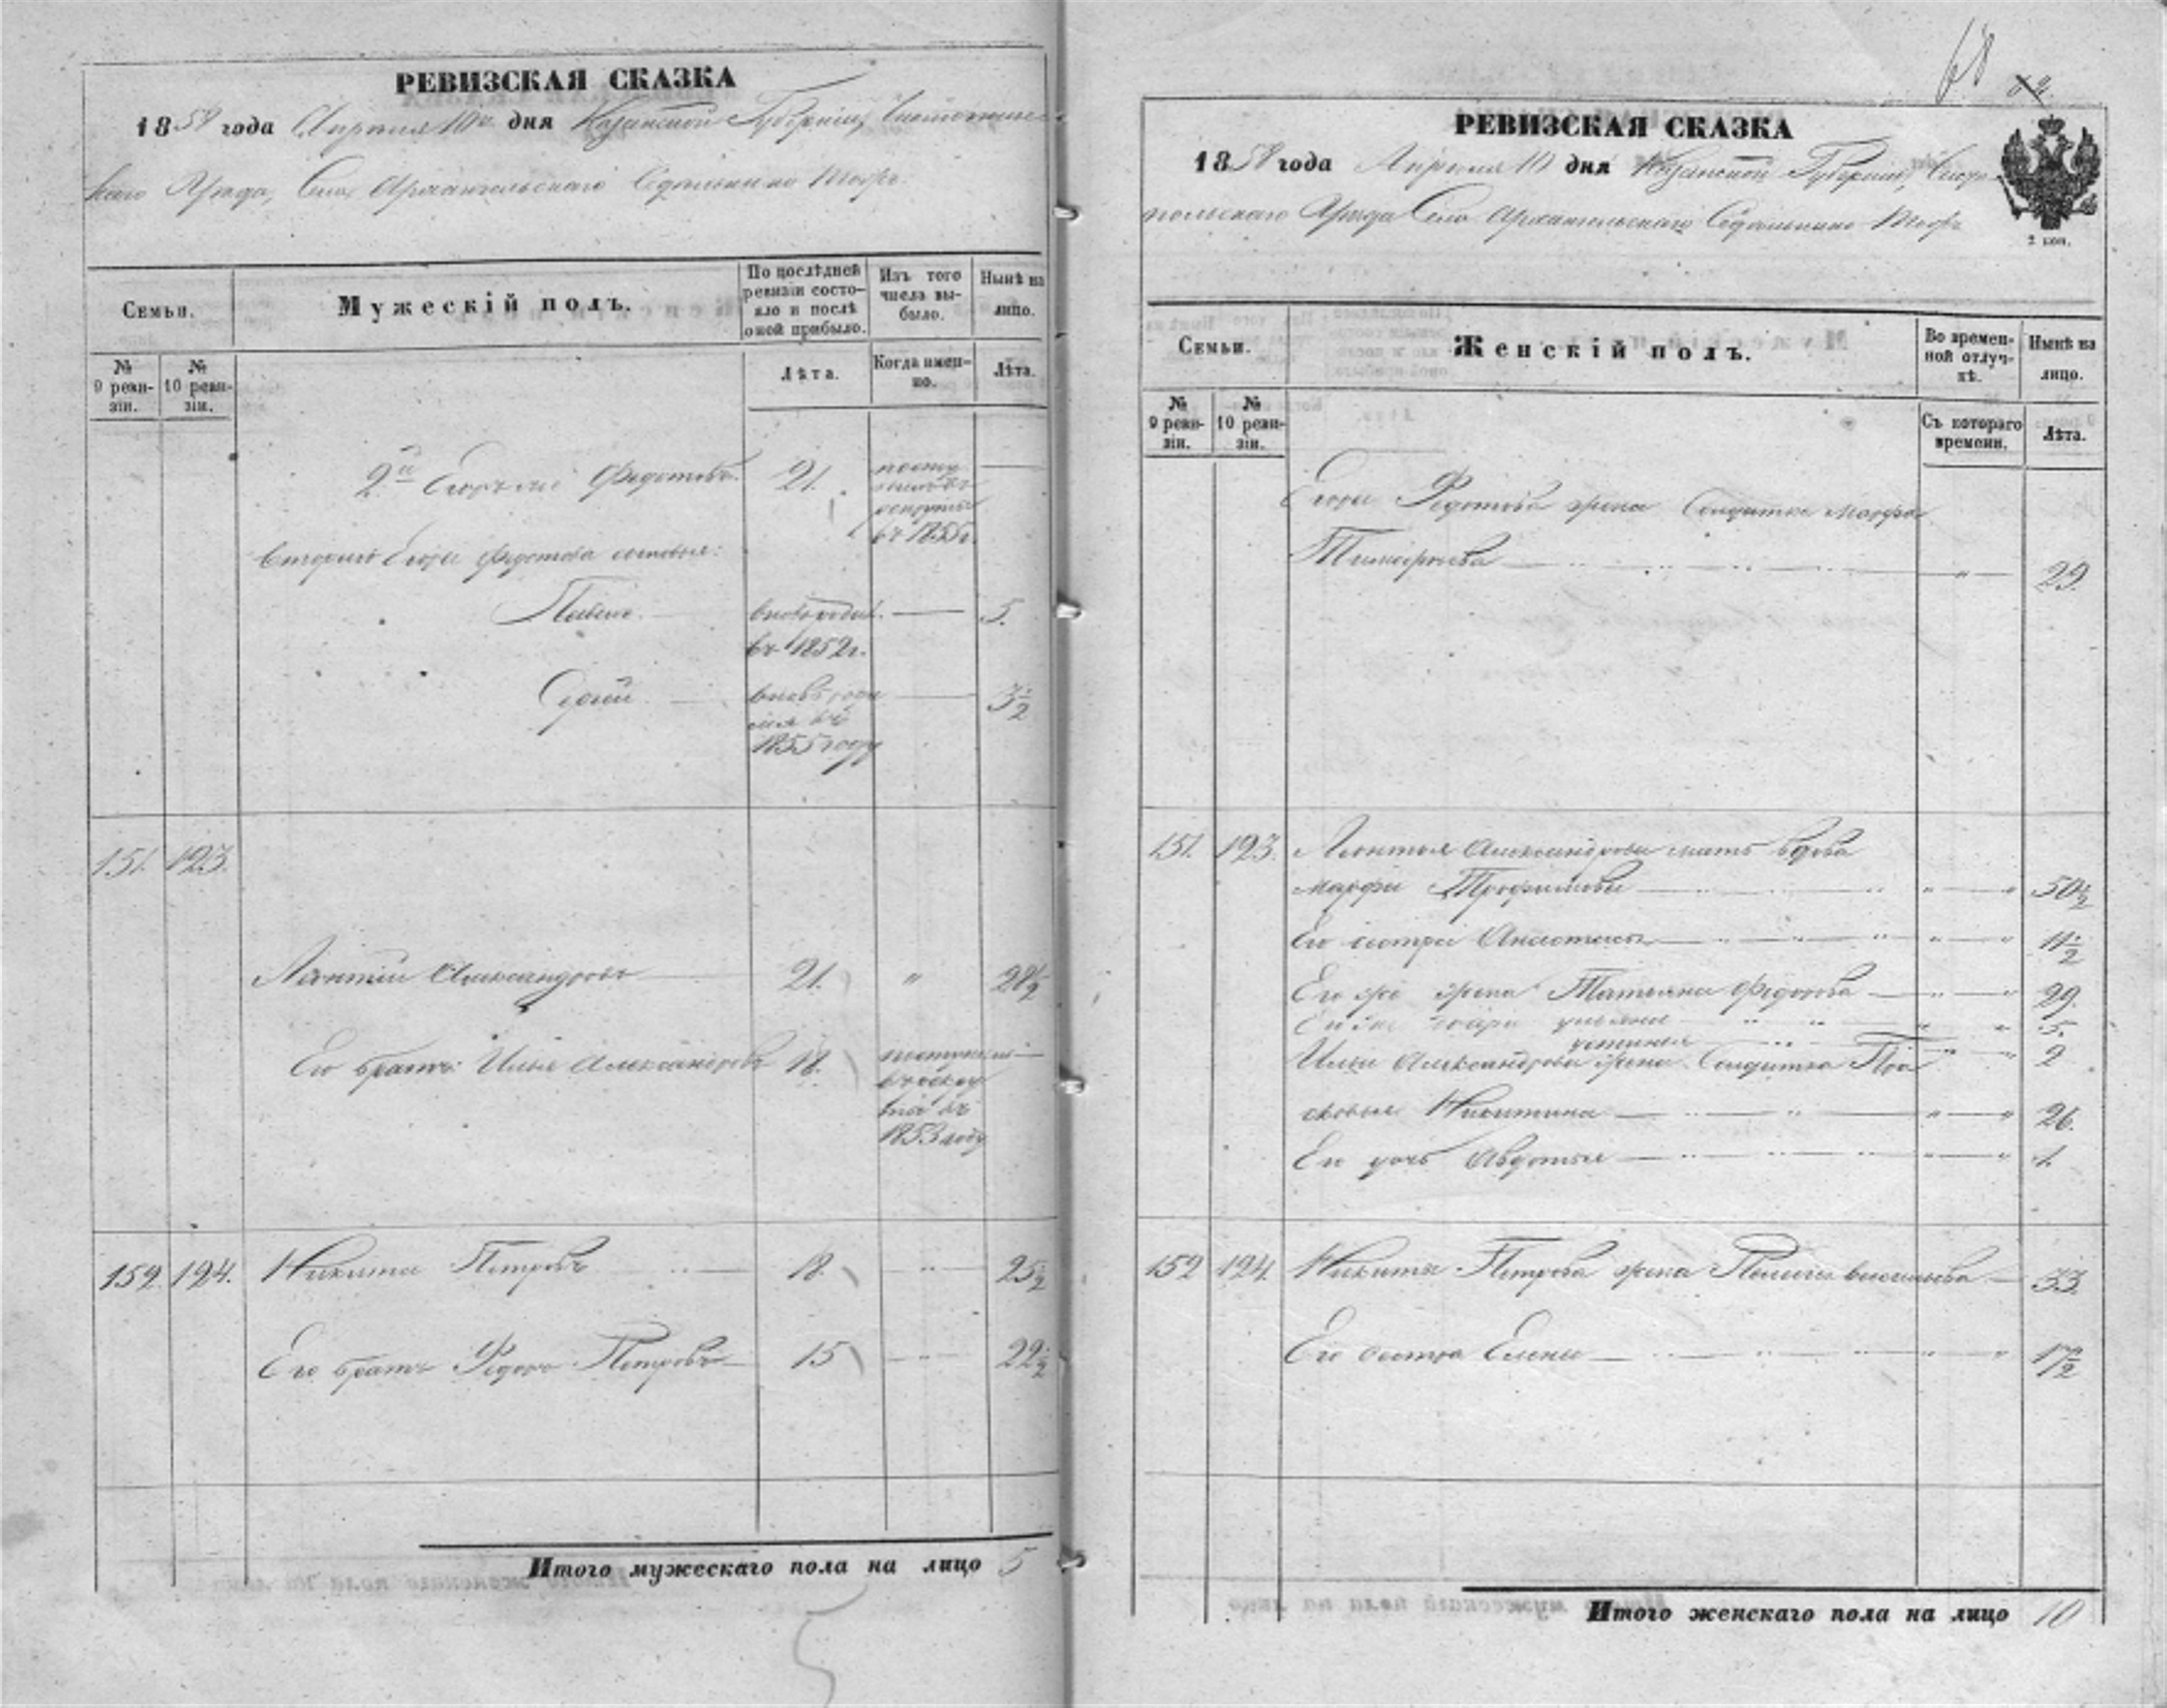 РЕВИЗСКАЯ СКАЗКА
1858 года Апреля 10го дня Казанской Губерніи, Чистополь
скаго Уѣзда, Села Архангельскаго
Семьи.
Мужескій полъ.
По послѣдней ревизіи состояло и послѣ оной прибыло.
Изъ того числа выбыло.
Нынѣ на лицо.
№ 9 ревизіи.
№ 10 ревизіи.
Лѣта.
Когда именно.
Лѣта.
2й Федотовъ 21.
въ 1855 г.
втораго Егора Федотова сыновья:
Павелъ 5.
въ 1852 г.
Сергѣй 3 1/2
1855 году
151. 123.
Леонтій Александровъ 21. " 28 1/2
Его братъ Илья Александровъ 18.
1853 году
152. 124. Никита Петровъ 18. " 25 1/2
Его братъ Федоръ Петровъ 15 " 22 1/2
Итого мужескаго пола на лицо 5
5
68
РЕВИЗСКАЯ СКАЗКА
1858 года Апреля 10 дня Казанской Губерніи, Чисто
польскаго Уѣзда Села Архангельскаго
2 коп.
Семьи.
Женскій полъ.
Во временной отлучкѣ.
Нынѣ на лицо.
№ 9 ревизіи.
№ 10 ревизіи.
Съ котораго времени.
Лѣта.
Егора Федотова жена Солдатка Марфа
Тимофеева " 29.
151. 123. Леонтья Александрова мать вдова
Марфа Трофимова " " 50 1/2
Его сестра " " 11 1/2
Его же жена Татьяна Федорова " 29.
" " 5.
Устинья " 2
Ильи Александрова жена Солдатка Пра
сковья Никитина " " 26.
Ея дочь Авдотья " " 1.
152 124. Никиты Петрова жена Васильева 33.
Его сестра Елена " " 17 1/2
Итого женскаго пола на лицо 10